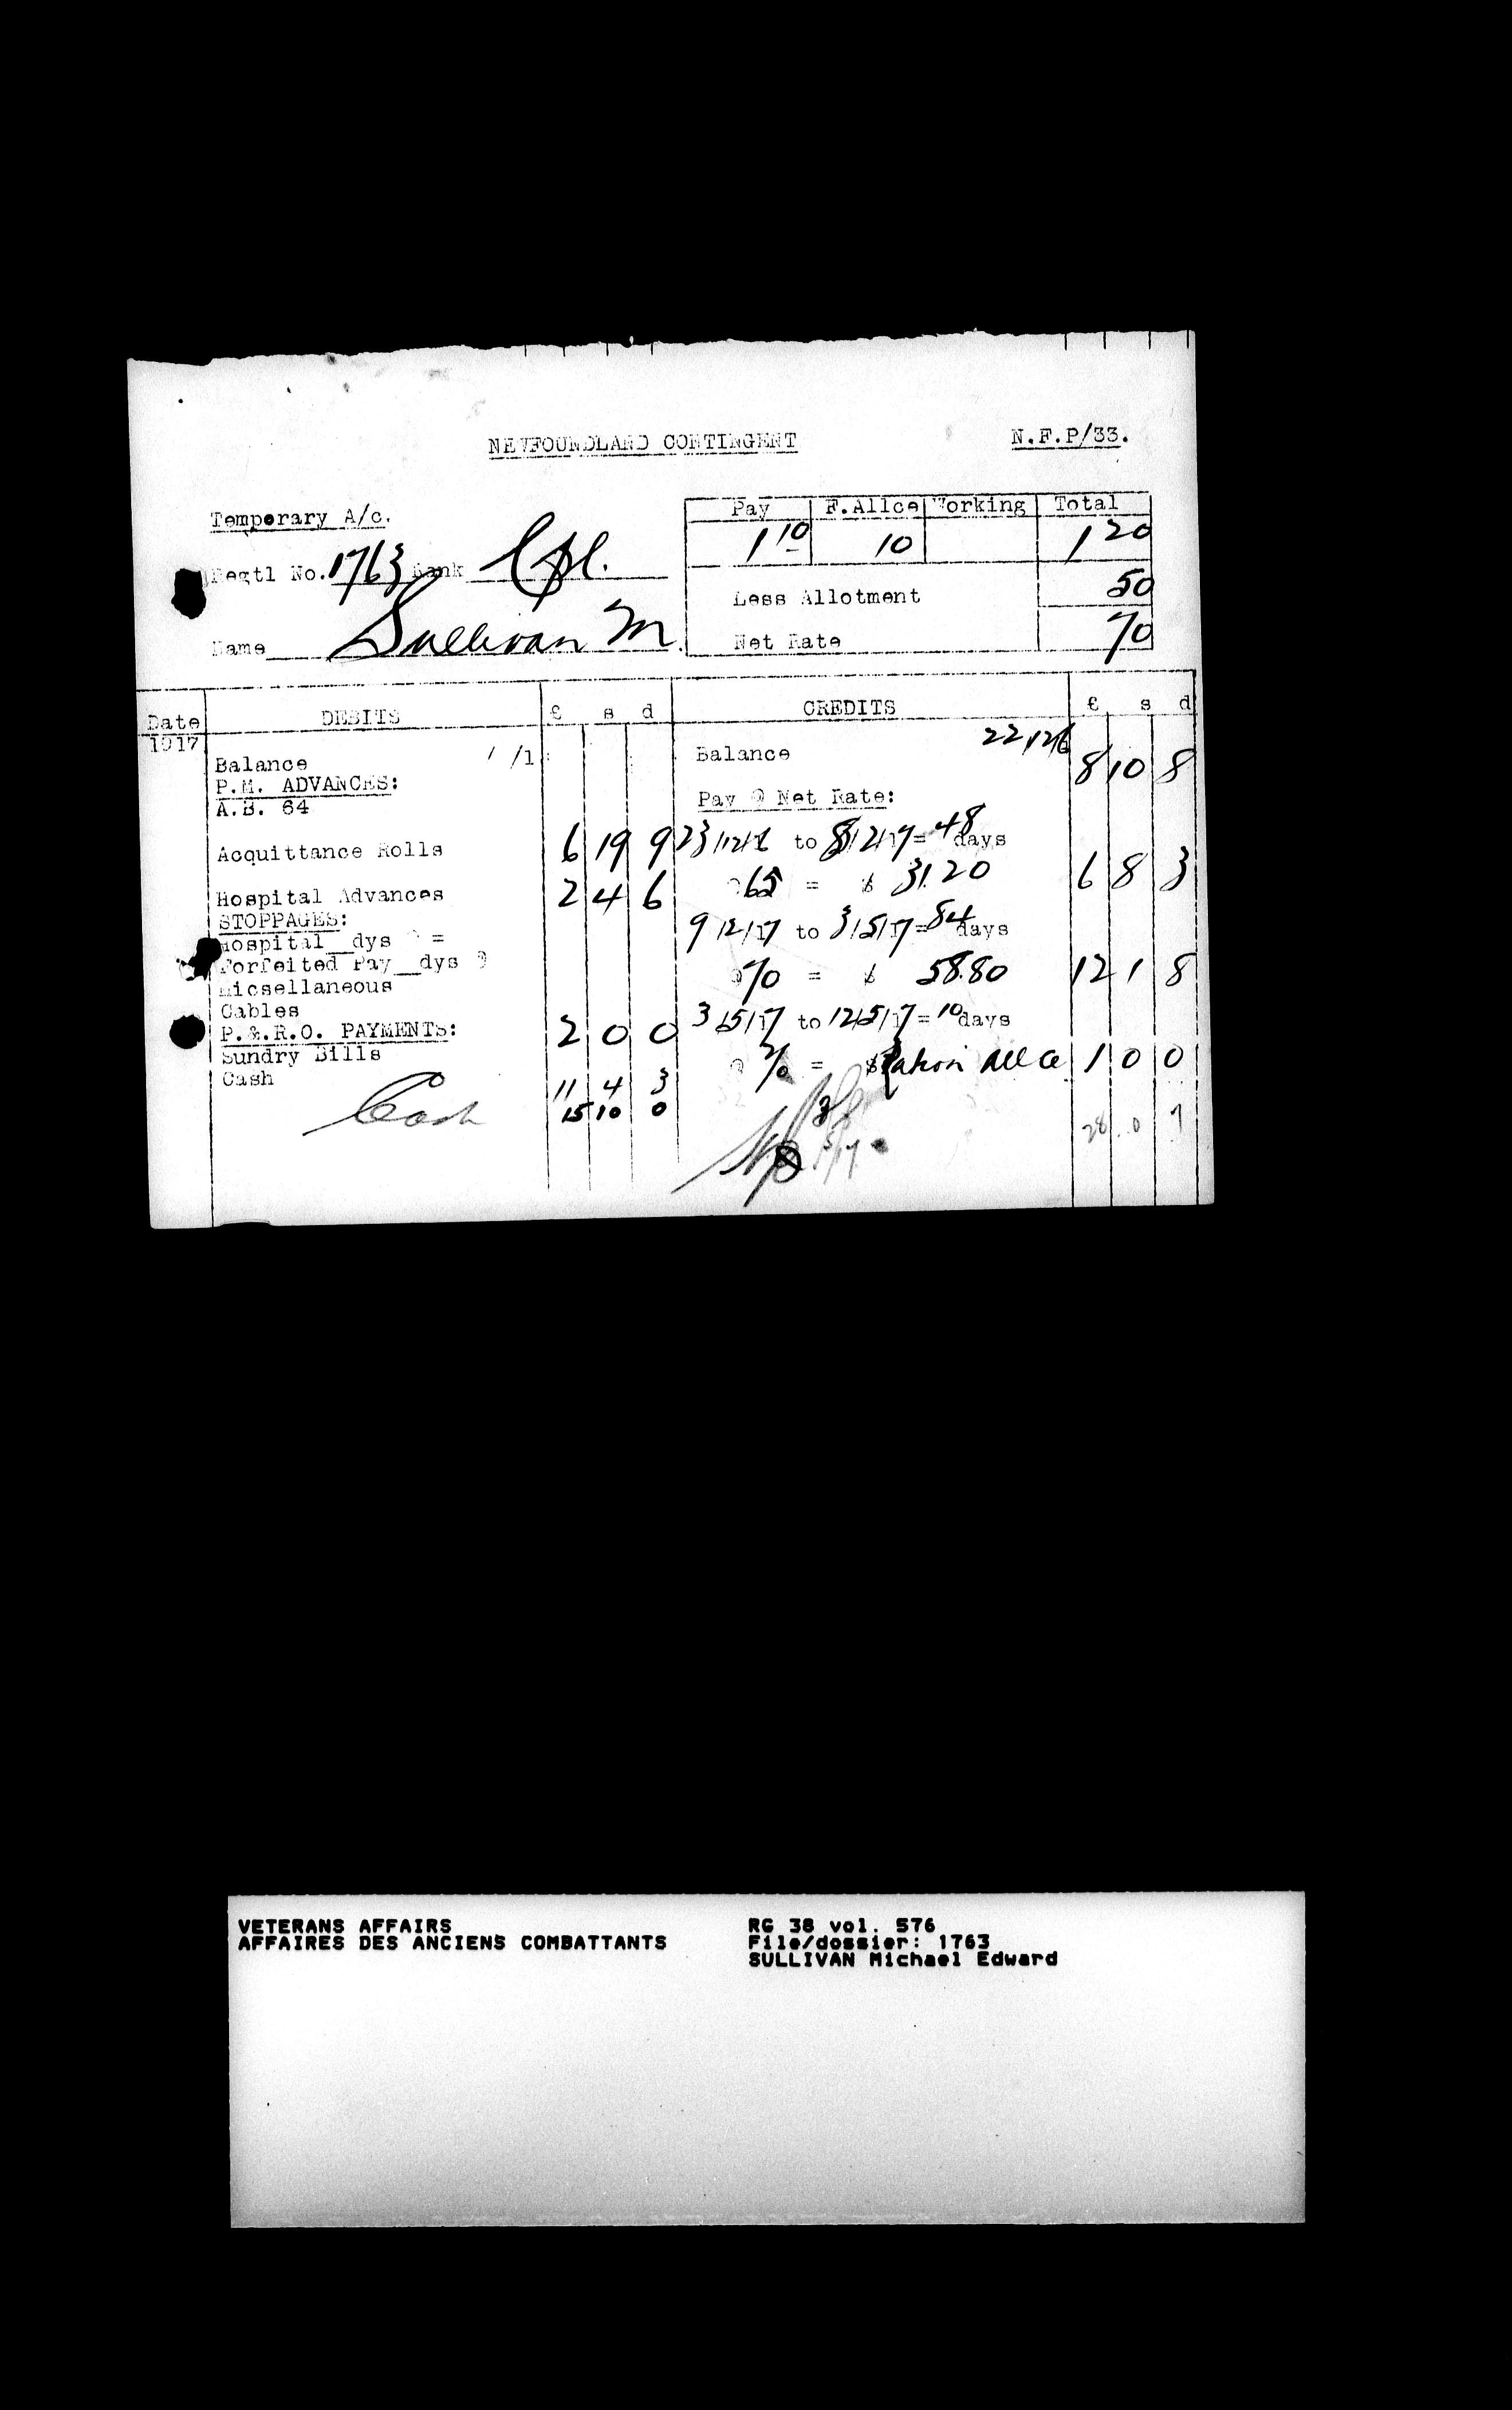 NEWFOUNDLAND CONTINGENT
N.F.P/33.
Temporary A/c.
Pay F.Allce Working Total
1 10 10 1 20
Regtl No. 1763 Rank Cpl.
Less Allotment 50
Name Sullivan M.
Net Rate 70
Date DEBITS £ s d CREDITS £ s d
1917
Balance / /1 Balance 22/12/6 8 10 8
P.M. ADVANCES:
A.B. 64 Pay @ Net Rate:
Acquittance Rolls 6 19 9 23/12/6 to 8/2/17 = 48 days
Hospital Advances 2 4 6 @ 65 = $ 31.20 6 8 3
STOPPAGES:
Hospital__dys @ = 9/2/17 to 3/5/17 = 84 days
Forfeited Pay__dys @
Micsellaneous @ 70 = $ 58.80 12 1 8
Cables
P.&.R.O. PAYMENTS: 2 0 0 3/5/17 to 12/5/17 = 10 days
Sundry Bills
Cash 11 4 3 @ 2/0 = $ Ration Allce 1 0 0
Cash 15 10 0
28 0 7
VETERANS AFFAIRS
AFFAIRES DES ANCIENS COMBATTANTS
RG 38 vol. 576
File/dossier: 1763
SULLIVAN Michael Edward